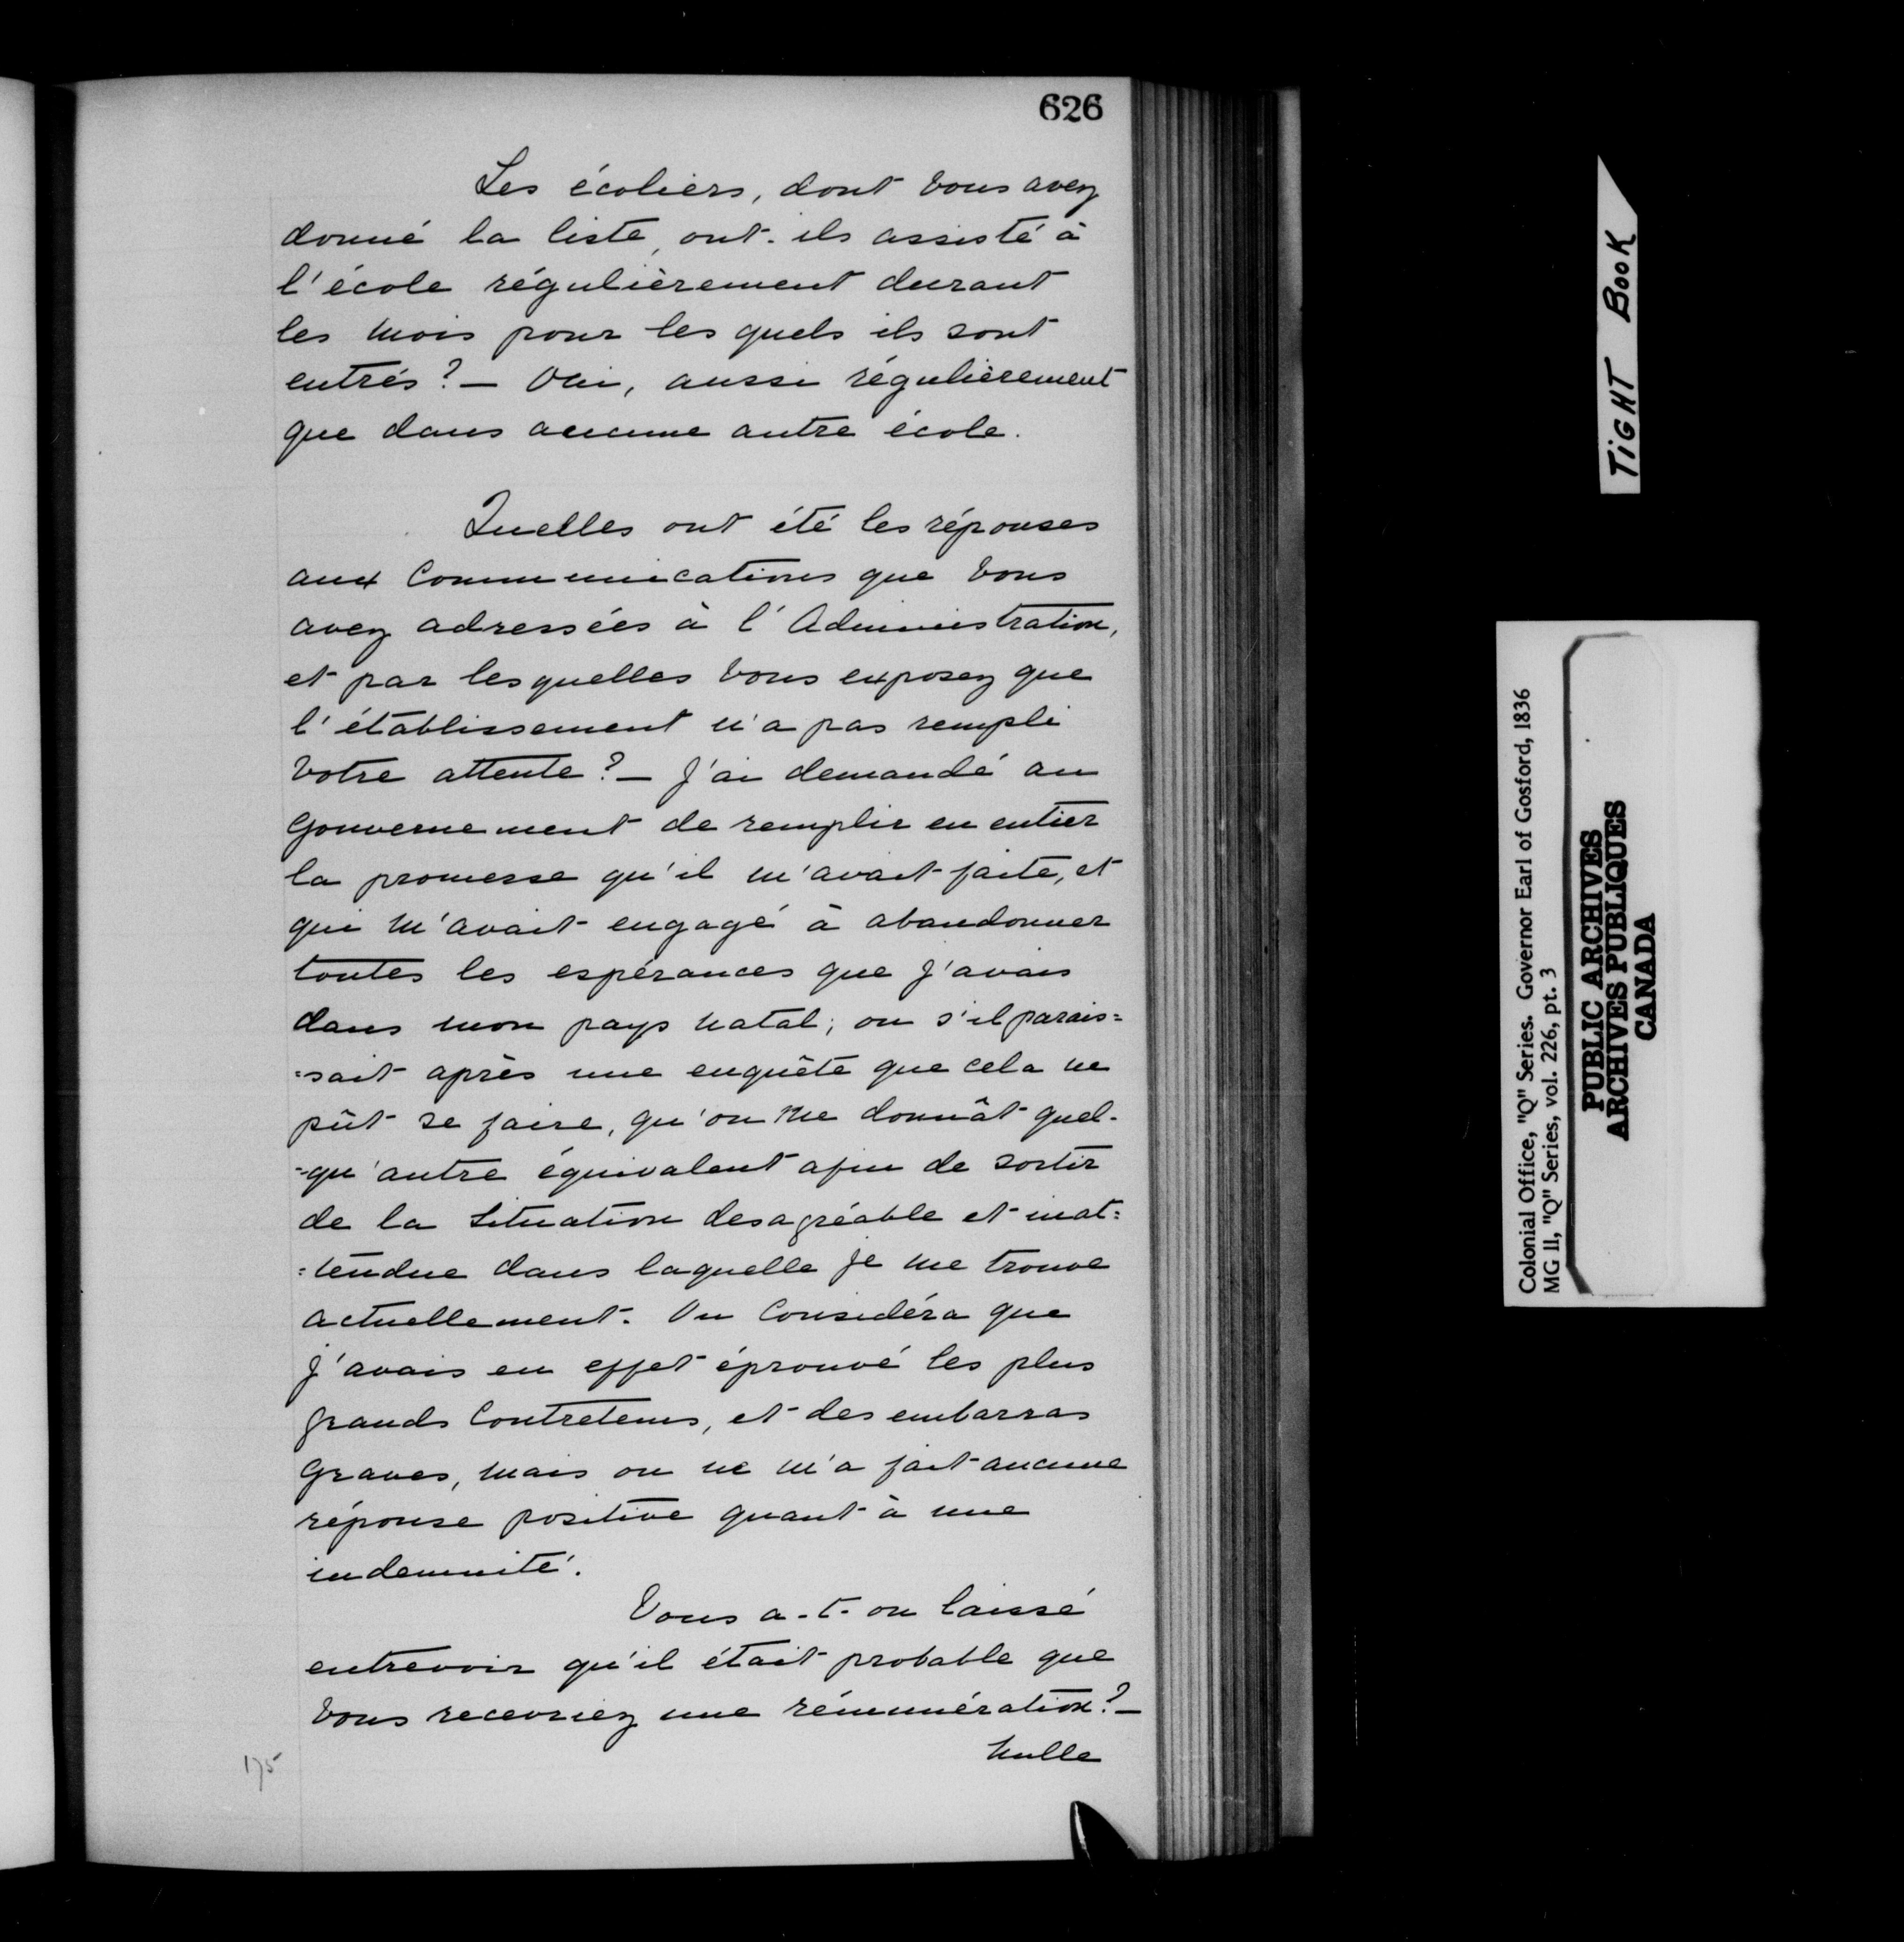 626
Les écoliers, dont vous avez
donné la liste, ont-ils assisté à
l'école régulièrement durant
les mois pour les quels ils sont
entrés? — Oui, aussi régulièrement
que dans aucune autre école.
Quelles ont été les réponses
aux Communications que vous
avez adressées à l'Administration,
et par lesquelles vous exposez que
l'établissement n'a pas rempli
votre attente? — J'ai demandé au
Gouvernement de remplir en entier
la promesse qu'il m'avait faite, et
qui m'avait engagé à abandonner
toutes les espérances que j'avais
dans mon pays natal; ou s'il parais=
=sait après une enquête que cela ne
pût se faire, qu'on me donnât quel-
-qu'autre équivalent afin de sortir
de la Situation desagréable et inat=
=tendue dans laquelle je me trouve
actuellement. On Considéra que
j'avais en effet éprouvé les plus
grands Contretems, et des embarras
Graves, mais on ne m'a fait aucune
réponse positive quant à une
indemnité.
Vous a-t-on laissé
entrevoir qu'il était probable que
vous recevriez une rémunération? —
Nulle
175
TIGHT BOOK
Colonial Office, "Q" Series. Governor Earl of Gosford, 1836
MG 11, "Q" Series, vol. 226, pt. 3
PUBLIC ARCHIVES
ARCHIVES PUBLIQUES
CANADA